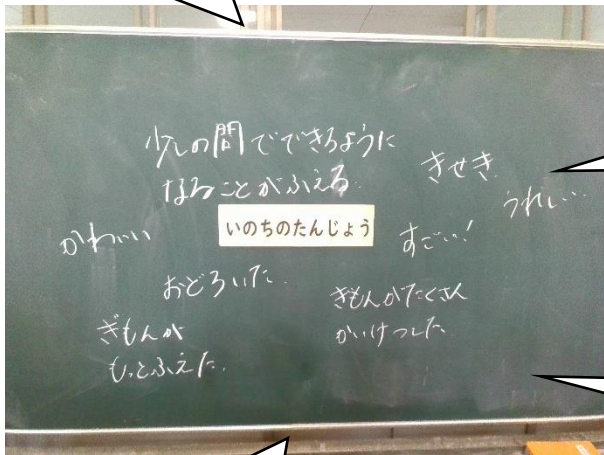 少しの間でできるように
なることがふえる。
きせき
うれしい。
かわいい
いのちのたんじょう
すごい!
おどろいた。
ぎもんがたくさん
かいけつした
ぎもんが
もっとふえた。